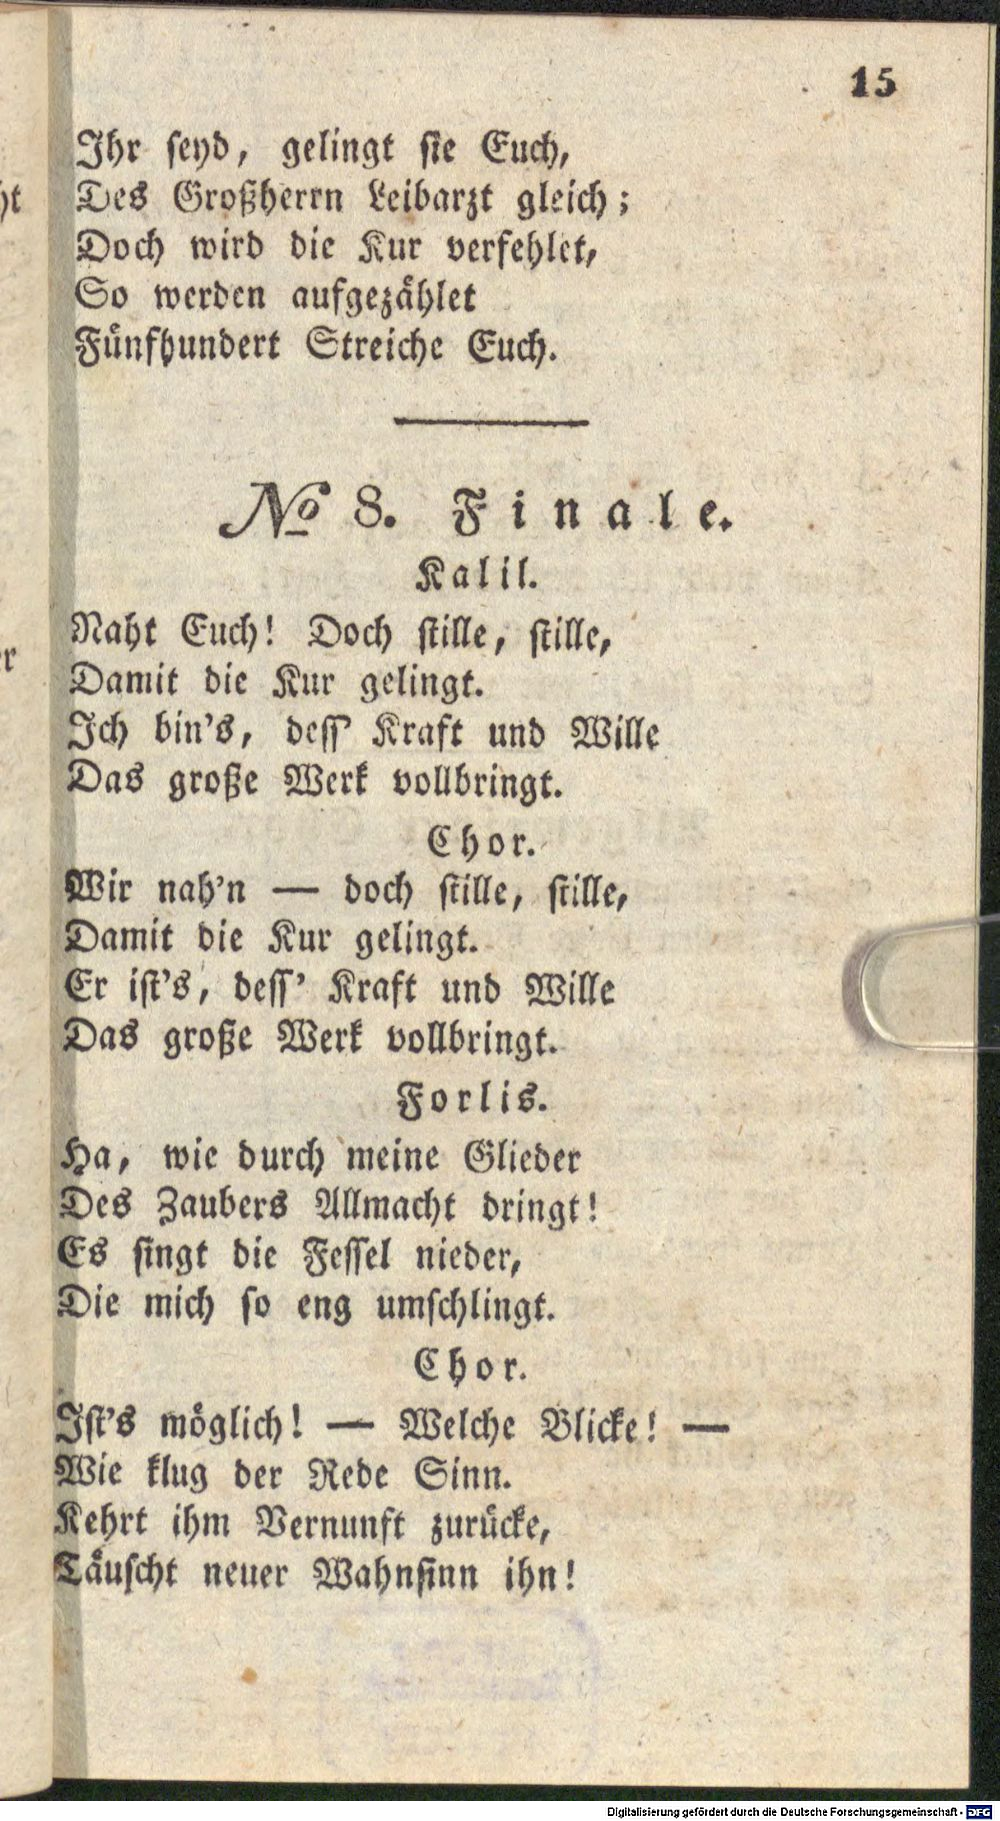 15
Ihr seyd, gelingt sie Euch,
Des Großherrn Leibarzt gleich;
Doch wird die Kur verfehlet,
So werden aufgezählet
Fünfhundert Streiche Euch.
No 8. Finale.
Kalil.
Naht Euch! Doch stille, stille,
Damit die Kur gelingt.
Ich bin's, dess' Kraft und Wille
Das große Werk vollbringt.
Chor.
Wir nah'n — doch stille, stille,
Damit die Kur gelingt.
Er ist's, dess' Kraft und Wille
Das große Werk vollbringt.
Forlis.
Ha, wie durch meine Glieder
Des Zaubers Allmacht dringt!
Es singt die Fessel nieder,
Die mich so eng umschlingt.
Chor.
Ist's möglich! — Welche Blicke! —
Wie klug der Rede Sinn.
Kehrt ihm Vernunft zurücke,
Täuscht neuer Wahnsinn ihn!
Digitalisierung gefördert durch die Deutsche Forschungsgemeinschaft - DFG